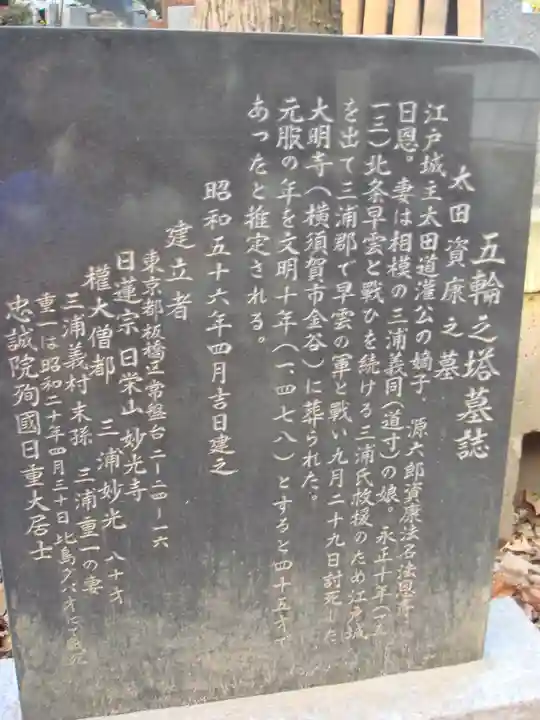 五輪之塔墓誌
太田資康之墓
江戸城主太田道灌公の嫡子、源六郎資康法名法恩寺
日恩。妻は相模の三浦義同(道寸)の娘。永正十年(一五
一三)北条早雲と戦ひを続ける三浦氏救援のため江戸城
を出て三浦郡で早雲の軍と戦い九月二十九日討死した
大明寺(横須賀市金谷)に葬られた。
元服の年を文明十年(一、四七八)とすると四十五才で
あったと推定される。
昭和五十六年四月吉日建之
建立者
東京都板橋区常盤台二ー二四ー一六
日蓮宗日栄山妙光寺
権大僧都 三浦妙光 八十才
三浦義村末孫 三浦重一の妻
重一は昭和二十年四月三十日比島
忠誠院殉國日重大居士